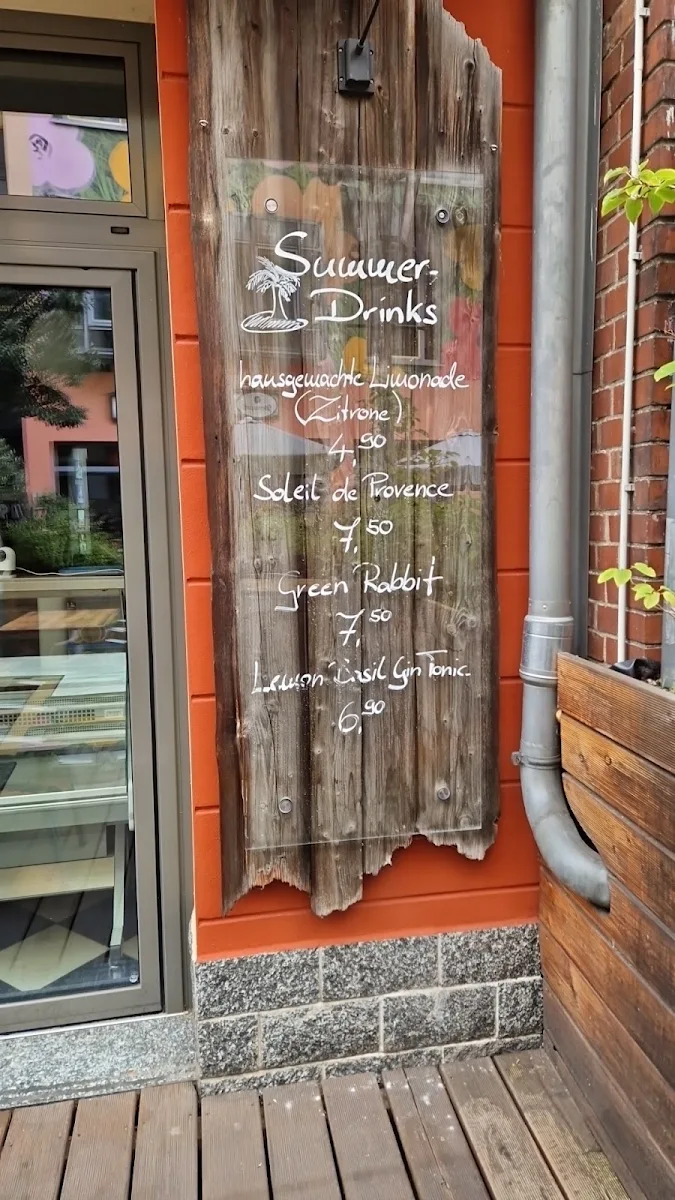 Summer-
Drinks
hausgemachte Limonade
(Zitrone)
4,90
Soleil de Provence
7,50
Green Rabbit
7,50
Lemon Basil Gin Tonic
6,90